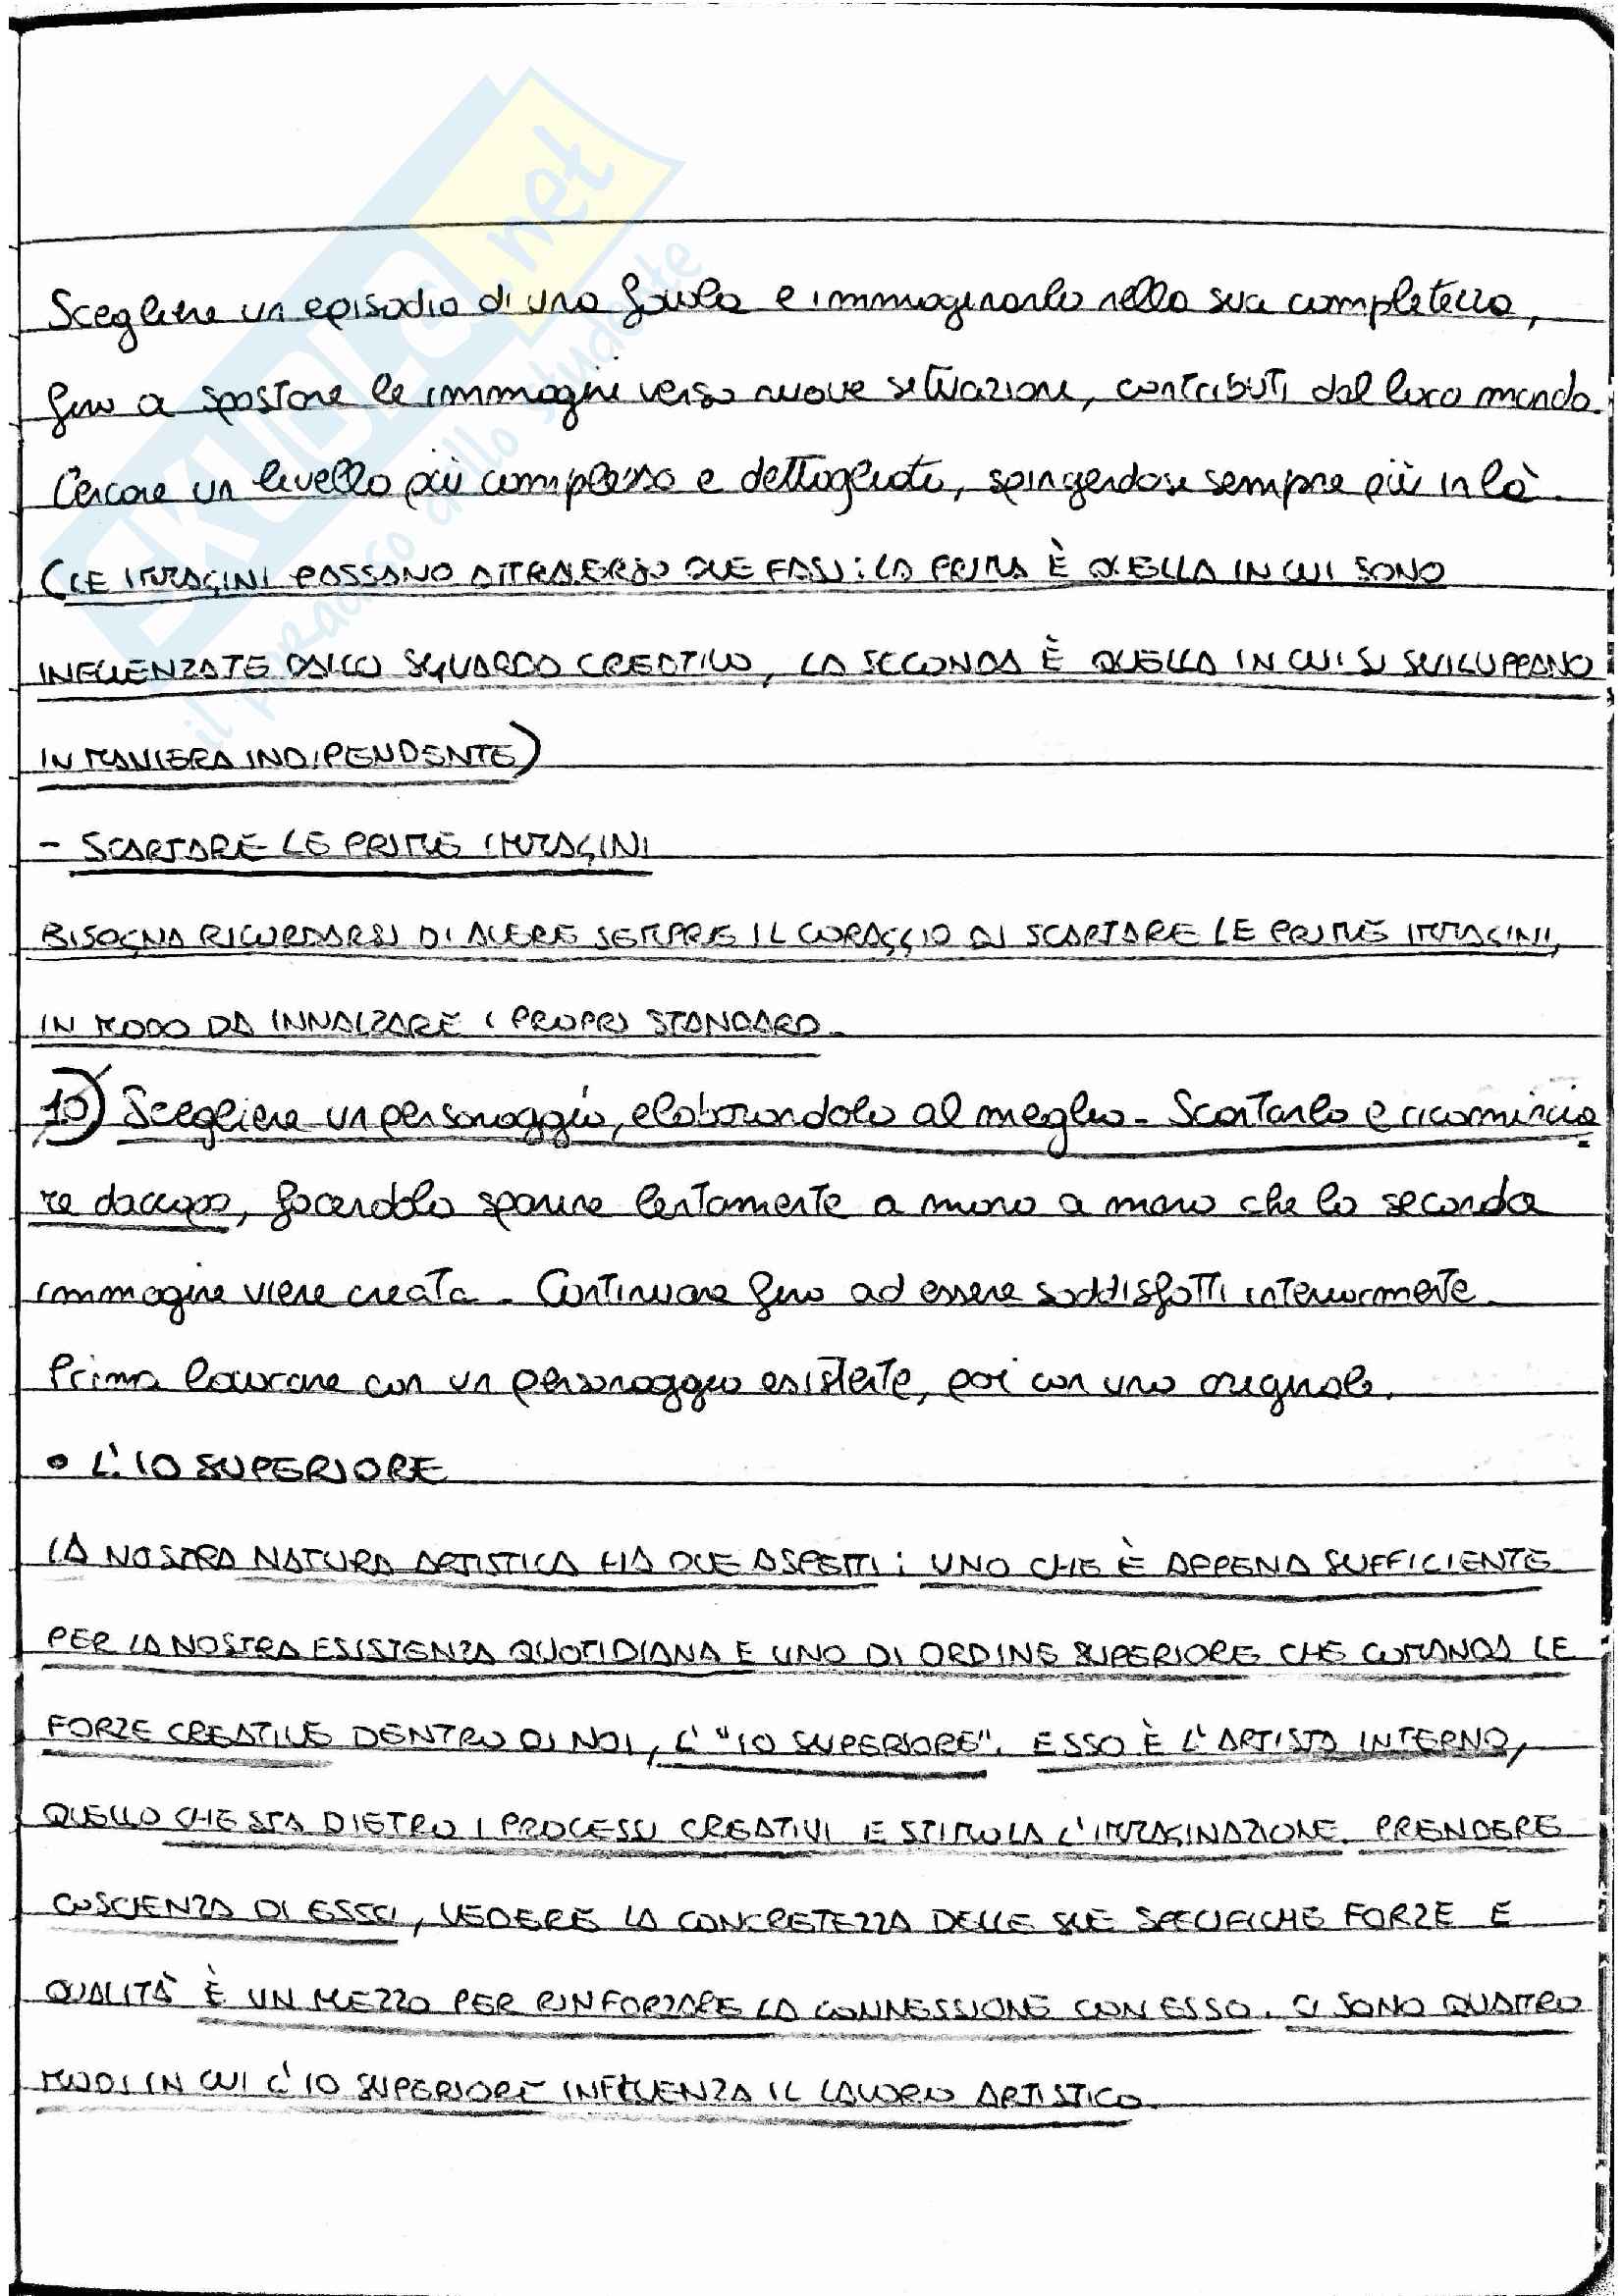 SKUOLA.net
il paradiso dello studente
Scegliere un episodio di una favola e immaginarlo nella sua completezza,
fino a spostare le immagini verso nuove situazioni, contributi dal loro mondo.
Cercare un livello più complesso e dettagliato, spingendosi sempre più in là.
(LE IMMAGINI PASSANO ATTRAVERSO DUE FASI: LA PRIMA È QUELLA IN CUI SONO
INFLUENZATE DALLO SGUARDO CREATIVO, LA SECONDA È QUELLA IN CUI SI SVILUPPANO
IN MANIERA INDIPENDENTE)
- SCARTARE LE PRIME IMMAGINI
BISOGNA RICORDARSI DI AVERE SEMPRE IL CORAGGIO DI SCARTARE LE PRIME IMMAGINI,
IN MODO DA INNALZARE I PROPRI STANDARD.
10) Scegliere un personaggio, elaborandolo al meglio - Scartarlo e ricomincia
re daccapo, facendolo sparire lentamente a mano a mano che la seconda
immagine viene creata - Continuare fino ad essere soddisfatti interiormente.
Prima lavorare con un personaggio esistente, poi con uno originale.
• L'IO SUPERIORE
LA NOSTRA NATURA ARTISTICA HA DUE ASPETTI: UNO CHE È APPENA SUFFICIENTE
PER LA NOSTRA ESISTENZA QUOTIDIANA E UNO DI ORDINE SUPERIORE CHE COMANDA LE
FORZE CREATIVE DENTRO DI NOI, L'"IO SUPERIORE". ESSO È L'ARTISTA INTERNO,
QUELLO CHE STA DIETRO I PROCESSI CREATIVI E STIMOLA L'IMMAGINAZIONE. PRENDERE
COSCIENZA DI ESSO, VEDERE LA CONCRETEZZA DELLE SUE SPECIFICHE FORZE E
QUALITÀ È UN MEZZO PER RINFORZARE LA CONNESSIONE CON ESSO. CI SONO QUATTRO
MODI IN CUI L'IO SUPERIORE INFLUENZA IL LAVORO ARTISTICO.